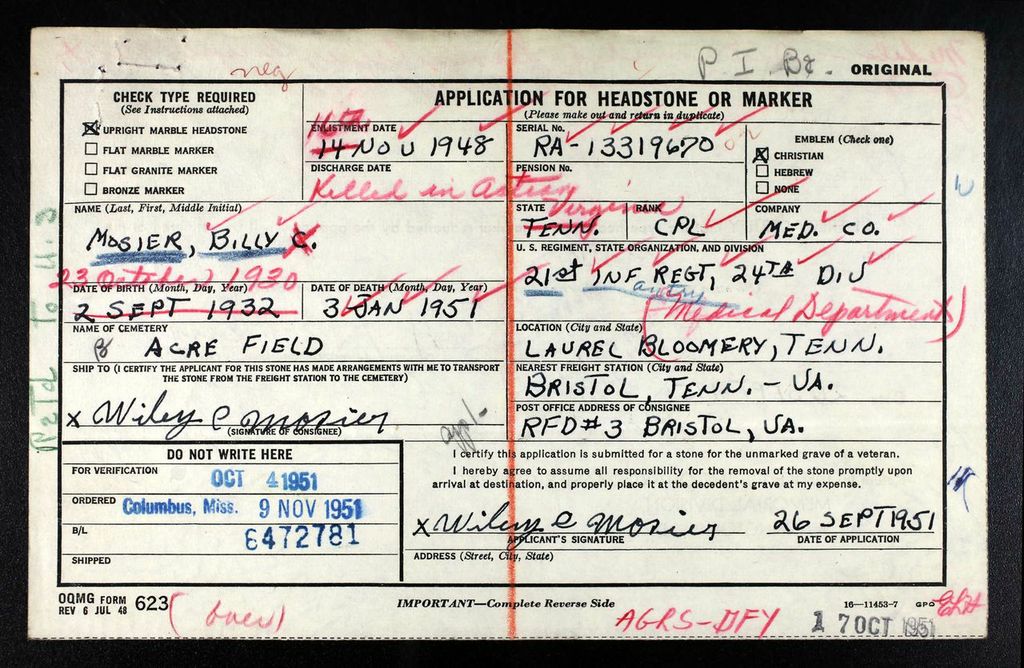 neg
P I Br.
ORIGINAL
CHECK TYPE REQUIRED
(See Instructions attached)
UPRIGHT MARBLE HEADSTONE
FLAT MARBLE MARKER
FLAT GRANITE MARKER
BRONZE MARKER
APPLICATION FOR HEADSTONE OR MARKER
(Please make out and return in duplicate)
ENLISTMENT DATE
16th
14 NOV 1948
DISCHARGE DATE
Killed in Action
SERIAL No.
RA-13319670
PENSION No.
EMBLEM (Check one)
CHRISTIAN
HEBREW
NONE
NAME (Last, First, Middle Initial)
MOSIER, BILLY C.
STATE
Virginia
TENN.
RANK
CPL
COMPANY
MED. CO.
U. S. REGIMENT, STATE ORGANIZATION, AND DIVISION
21st INF REGT, 24TH DIV
(Medical Department)
23 October 1930
DATE OF BIRTH (Month, Day, Year)
2 SEPT 1932
DATE OF DEATH (Month, Day, Year)
3 JAN 1951
NAME OF CEMETERY
ACRE FIELD
LOCATION (City and State)
LAUREL BLOOMERY, TENN.
SHIP TO (I CERTIFY THE APPLICANT FOR THIS STONE HAS MADE ARRANGEMENTS WITH ME TO TRANSPORT
THE STONE FROM THE FREIGHT STATION TO THE CEMETERY)
x Wiley C Mosier
(SIGNATURE OF CONSIGNEE)
NEAREST FREIGHT STATION (City and State)
BRISTOL, TENN. - VA.
POST OFFICE ADDRESS OF CONSIGNEE
RFD #3 BRISTOL, VA.
DO NOT WRITE HERE
FOR VERIFICATION
OCT 4 1951
ORDERED
Columbus, Miss. 9 NOV 1951
B/L
6472781
SHIPPED
I certify this application is submitted for a stone for the unmarked grave of a veteran.
I hereby agree to assume all responsibility for the removal of the stone promptly upon
arrival at destination, and properly place it at the decedent's grave at my expense.
x Wiley C Mosier
APPLICANT'S SIGNATURE
26 SEPT 1951
DATE OF APPLICATION
ADDRESS (Street, City, State)
OQMG FORM
REV 6 JUL 48
623
(over)
IMPORTANT—Complete Reverse Side
16—11453-7 GPO
AGRS-DFY
1 7 OCT 1951